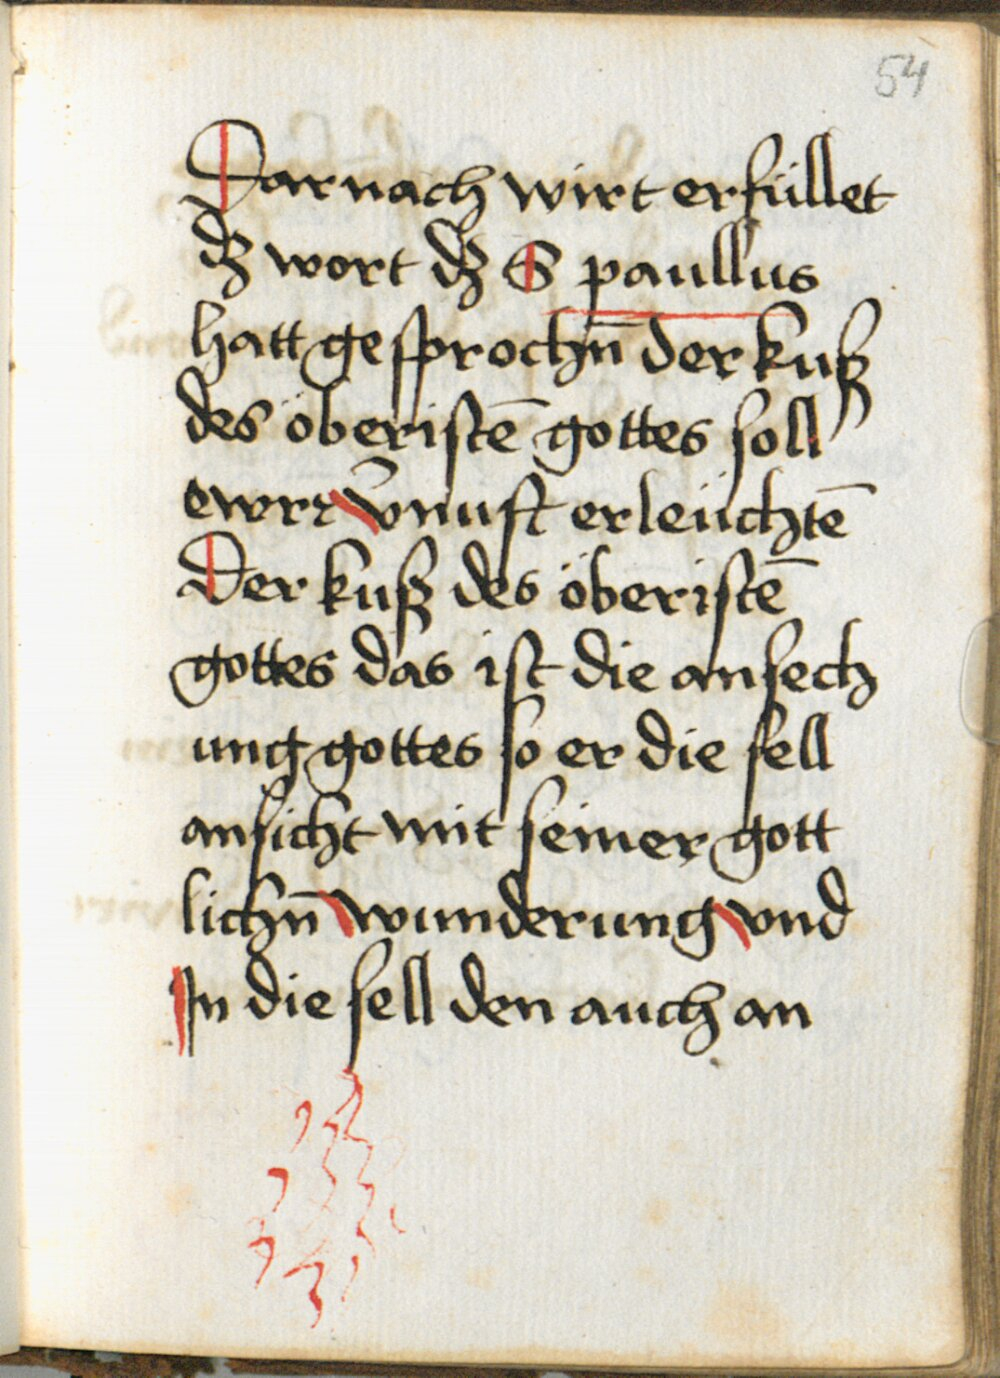 54
Darnach wirt erfüllet
dz wort dz S paullus
hatt gesprochn̄ der kuß
des öberistē gottes soll
ewrr v̄nuft erleüchtē
Der kuß des öberistē
gottes das ist die ansech
ung gottes so er die sell
ansicht mit seiner gott
lichn̄ wunderung vnd
In die sell den auch an